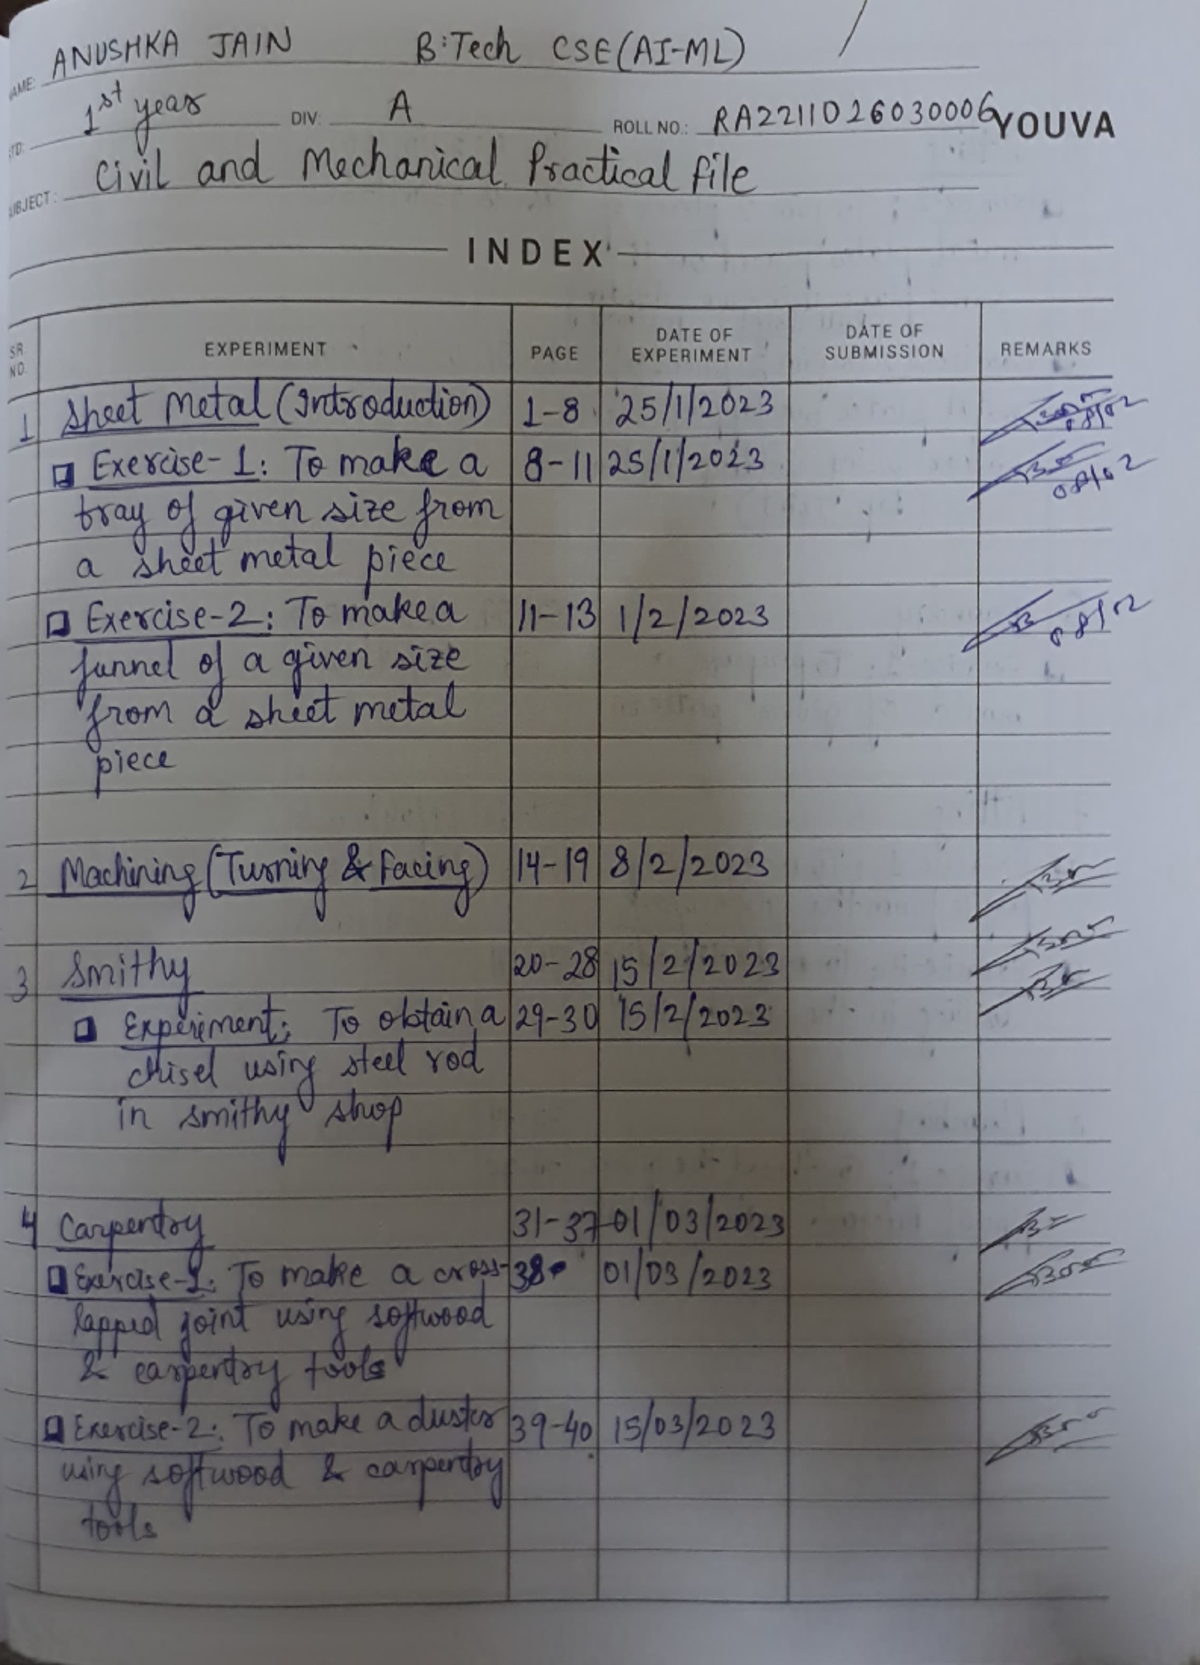 NAME: ANUSHKA JAIN B.Tech CSE(AI-ML)
STD: 1st year DIV: A ROLL NO.: RA2211026030006 YOUVA
SUBJECT: Civil and Mechanical Practical file
INDEX
SR. NO. EXPERIMENT PAGE DATE OF EXPERIMENT DATE OF SUBMISSION REMARKS
1 Sheet Metal (Introduction) 1-8 25/1/2023 08/02
Exercise-1: To make a 8-11 25/1/2023 08/02
tray of given size from
a sheet metal piece
Exercise-2: To make a 11-13 1/2/2023 08/02
funnel of a given size
from a sheet metal
piece
2 Machining (Turning & Facing) 14-19 8/2/2023
3 Smithy 20-28 15/2/2023
Experiment: To obtain a 29-30 15/2/2023
chisel using steel rod
in smithy shop
4 Carpentry 31-37 01/03/2023
Exercise-1: To make a cross- 38 01/03/2023
lapped joint using softwood
& carpentry tools
Exercise-2: To make a duster 39-40 15/03/2023
using softwood & carpentry
tools